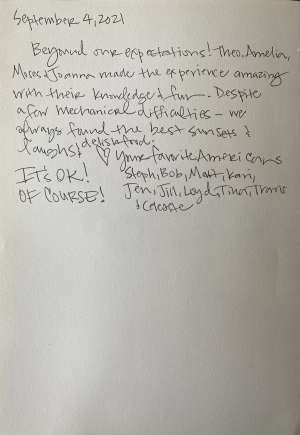 September 4, 2021
Beyond our expectations! Theo, Amelia,
Moses & Joanna made the experience amazing
with their knowledge & fun. Despite
a few mechanical difficulties – we
always found the best sunsets &
laughs! delish food.
♡ Your favorite Americans
IT'S OK! Steph, Bob, Matt, Kari,
OF COURSE! Jen, Jill, Loyd, Tina, Travis
& Celeste